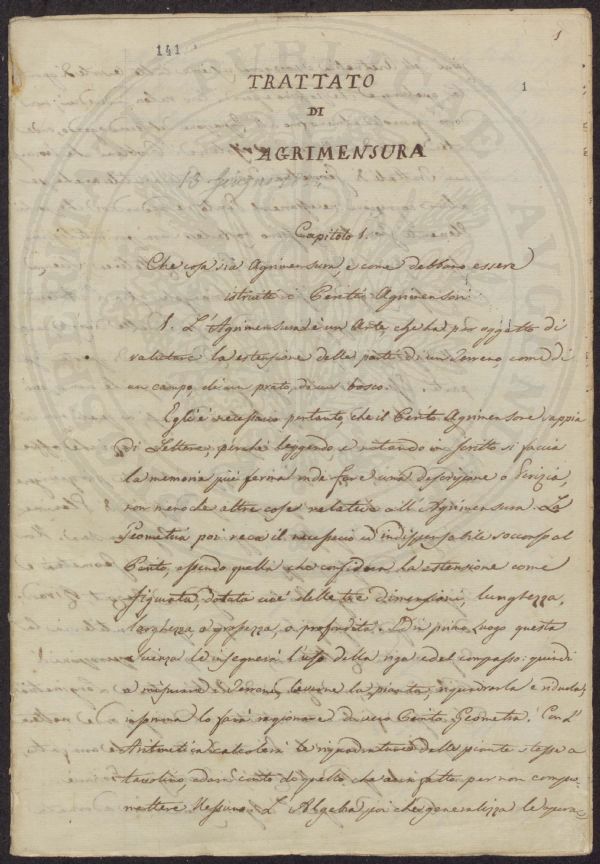 141
1
1
TRATTATO
DI
AGRIMENSURA
15 Giugno
Capitolo 1.
Che cosa sia Agrimensura e come debbano essere
istruiti i Periti Agrimensori
1. L'Agrimensura è un Arte, che ha per oggetto di
valutare la estensione delle parti di un Terreno, come di
un campo, di un prato, di un bosco.
Egli è necessario pertanto, che il Perito Agrimensore sappia
di Lettere, perchè leggendo e notando in scritto si faccia
la memoria più ferma onde fare una descrizione o Perizia,
non meno che altre cose relative all'Agrimensura. La
Geometria poi reca il necessario ed indispensabile soccorso al
Perito, essendo quella che considera la estensione come
figurata, dotata cioè delle tre dimensioni, lunghezza,
larghezza, e grossezza, o profondità. Ed in primo luogo questa
scienza le insegnerà l'uso della riga e del compasso: quindi
a misurare il Terreno, levarne la pianta, riquadrarla e ridurla;
insomma lo farà ragionare da vero Perito Geometra. Con l'
Aritmetica calcolerà le riquadrature delle piante stesse a
tavolino, e darà conto di quello che avrà fatto per non compro=
mettere Nessuno. L'Algebra poi che generalizza le opera=